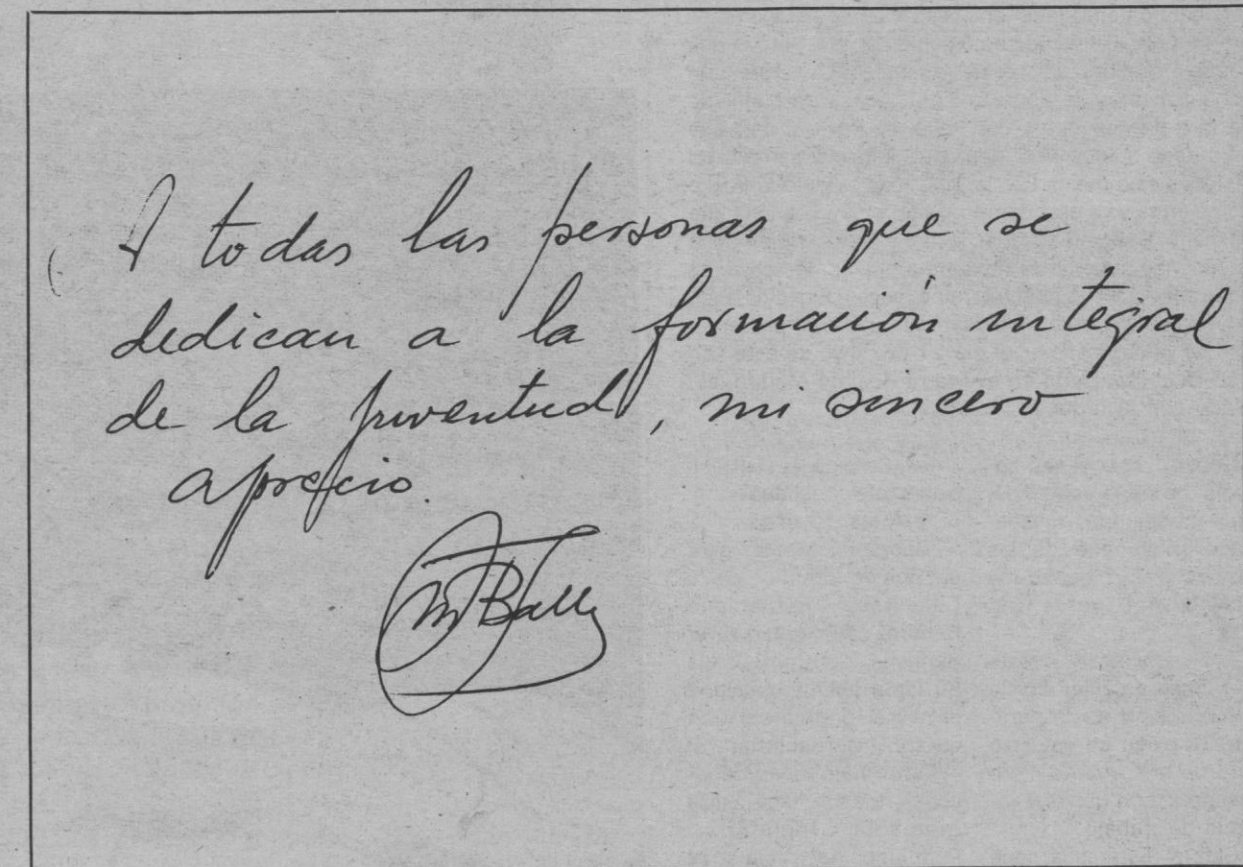 A todas las personas que se
dedican a la formación integral
de la juventud, mi sincero
aprecio.